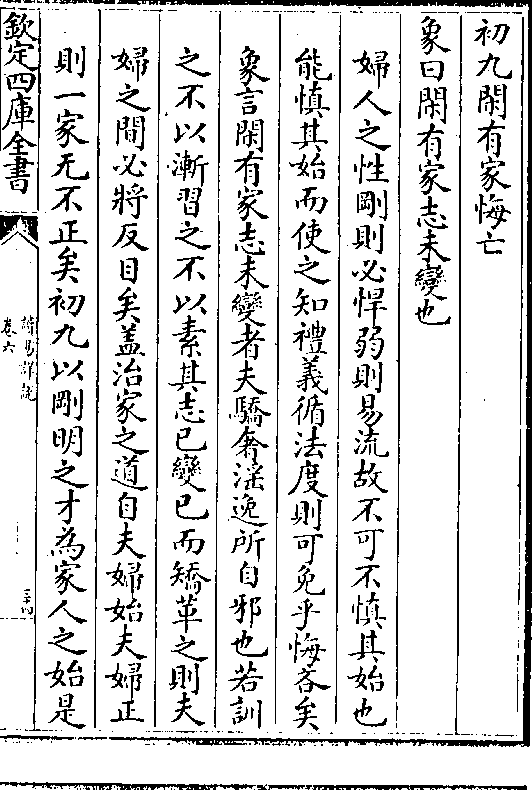 初九閑有家悔亡
象曰閑有家志未變也
婦人之性剛則必悍弱則易流故不可不慎其始也
能慎其始而使之知禮義循法度則可免乎悔吝矣
象言閑有家志未變者夫驕奢淫逸所自邪也若訓
之不以漸習之不以素其志已變已而矯革之則夫
婦之間必將反目矣蓋治家之道自夫婦始夫婦正
則一家无不正矣初九以剛明之才為家人之始是
欽定四庫全書
讀易詳說
卷六